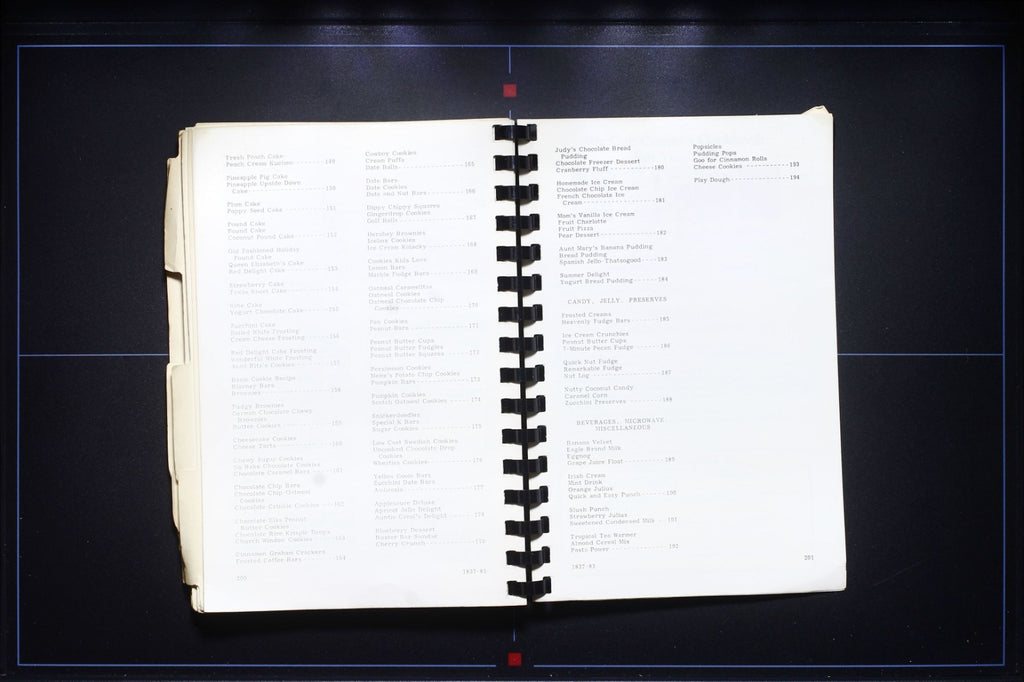 Fresh Peach Cake
Peach Cream Kuchen ----------149
Pineapple Pig Cake
Pineapple Upside Down
Cake ------------------150
Plum Cake
Poppy Seed Cake ------------151
Pound Cake
Pound Cake
Coconut Pound Cake ---------152
Old Fashioned Holiday
Pound Cake
Queen Elizabeth's Cake
Red Delight Cake -----------153
Strawberry Cake
Texas Sheet Cake -----------154
Wine Cake
Yogurt Chocolate Cake ------155
Zucchini Cake
Boiled White Frosting
Cream Cheese Frosting ------156
Red Delight Cake Frosting
Wonderful White Frosting
Aunt Rita's Cookies
Basic Cookie Recipe
Blarney Bars
Brownies
Fudgy Brownies
German Chocolate Chewy
Brownies
Butter Cookies
Cheesecake Cookies
Cheese Torte
Chewy Sugar Cookies
No Bake Chocolate Cookies
Chocolate Caramel Bars ----161
Chocolate Chip Bars
Chocolate Chip-Oatmeal
Cookies
Chocolate Crinkle Cookies ---162
Chocolate Kiss Peanut
Butter Cookies
Chocolate Rice Krispie Treats
Church Window Cookies ------163
Cinnamon Graham Crackers
Frosted Coffee Bars --------164
200
Cowboy Cookies
Cream Puffs
Date Balls------------------165
Date Bars
Date Cookies
Date and Nut Bars ----------166
Dippy Chippy Squares
Gingerdrop Cookies
Golf Balls -----------------167
Hershey Brownies
Icebox Cookies
Ice Cream Kolacky ----------168
Cookies Kids Love
Lemon Bars
Marble Fudge Bars ----------169
Oatmeal Caramelitas
Oatmeal Cookies
Oatmeal Chocolate Chip
Cookies --------------------170
Pan Cookies
Peanut Bars ----------------171
Peanut Butter Cups
Peanut Butter Fudgies
Peanut Butter Squares ------172
Persimmon Cookies
Potato Chip Cookies
Pumpkin Bars ---------------173
Pumpkin Cookies
Scotch Oatmeal Cookies -----174
Snickerdoodles
Special K Bars
Sugar Cookies --------------175
Low Cost Swedish Cookies
Uncooked Chocolate Drop
Cookies
Wheaties Cookies -----------176
Yellow Goose Bars
Zucchini Date Bars
Ambrosia -------------------177
Applesauce Deluxe
Apricot Jello Delight
Auntie Carol's Delight -----178
Blueberry Dessert
Buster Bar Sundae
Cherry Crunch --------------179
1837-83
Judy's Chocolate Bread
Pudding
Chocolate Freezer Dessert
Cranberry Fluff ------------180
Homemade Ice Cream
Chocolate Chip Ice Cream
French Chocolate Ice
Cream------------------181
Mom's Vanilla Ice Cream
Fruit Charlotte
Fruit Pizza
Pear Dessert ---------------182
Aunt Mary's Banana Pudding
Bread Pudding
Spanish Jello-Thatsogood----183
Summer Delight
Yogurt Bread Pudding -------184
CANDY, JELLY, PRESERVES
Frosted Creams
Heavenly Fudge Bars---------185
Ice Cream Crunchies
Peanut Butter Cups
7-Minute Pecan Fudge -------186
Quick Nut Fudge
Remarkable Fudge
Nut Log --------------------187
Nutty Coconut Candy
Caramel Corn
Zucchini Preserves ---------188
BEVERAGES, MICROWAVE,
MISCELLANEOUS
Banana Velvet
Eagle Brand Milk
Eggnog
Grape Juice Float-----------189
Irish Cream
Mint Drink
Orange Julius
Quick and Easy Punch -------190
Slush Punch
Strawberry Julius
Sweetened Condensed Milk ---191
Tropical Tea Warmer
Almond Cereal Mix
Pasta Power ----------------192
1837-83
Popsicles
Pudding Pops
Goo for Cinnamon Rolls
Cheese Cookies -------------193
Play Dough -----------------194
201